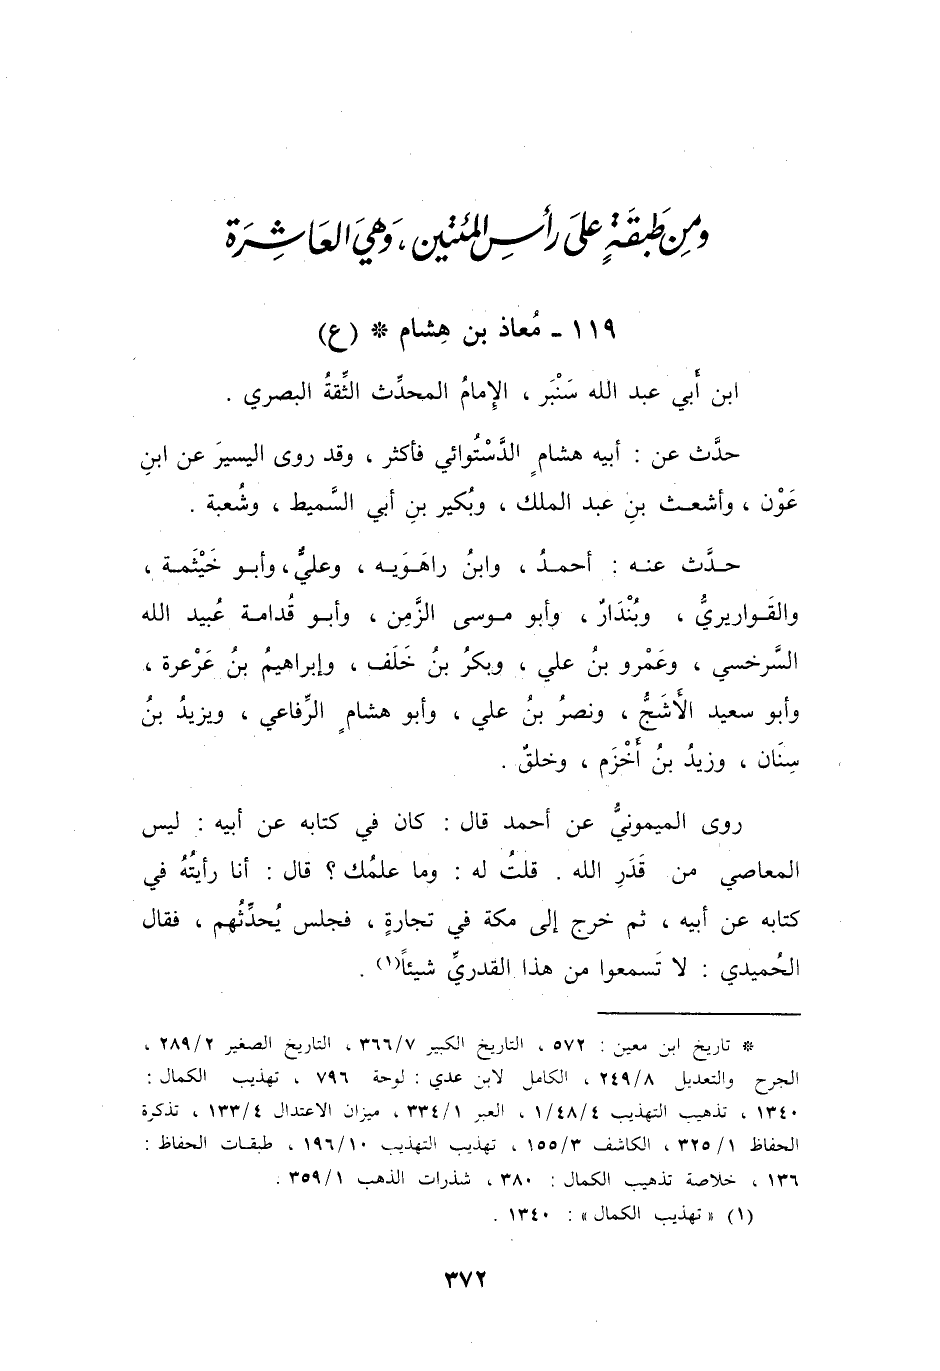 ومِن طَبقَةٍ علىَ رأسِ المئتين ، وَهيَ العَاشِرَة
١١٩ ـ مُعاذ بن هِشام * (ع)
ابن أَبي عبد الله سَنْبَر ، الإِمامُ المحدِّث الثِّقةُ البصري .
حدَّث عن : أبيه هشامٍ الدَّسْتُوائي فأكثر ، وقد روى اليسيرَ عن ابنِ
عَوْن ، وأشعث بنِ عبد الملك ، وبُكير بنِ أبي السَّميط ، وشُعبة .
حدَّث عنه : أحمدُ ، وابنُ راهَوَيه ، وعليٌّ ، وأبو خَيْثَمة ،
والقَواريريُّ ، وبُنْدَارٌ ، وأبو موسى الزَّمِن ، وأبو قُدامة عُبيد الله
السَّرخسي ، وعَمْرو بنُ علي ، وبكرُ بنُ خَلَف ، وإبراهيمُ بنُ عَرْعرة ،
وأبو سعيد الأَشَجُّ ، ونصرُ بنُ علي ، وأبو هشامٍ الرِّفاعي ، ويزيدُ بنُ
سِنَان ، وزيدُ بنُ أَخْزَم ، وخلقٌ .
روى الميمونيُّ عن أحمد قال : كان في كتابه عن أبيه : ليس
المعاصي من قَدَرِ الله . قلتُ له : وما علمُك ؟ قال : أنا رأيتُهُ في
كتابه عن أبيه ، ثم خرج إلى مكة في تجارةٍ ، فجلس يُحدِّثُهم ، فقال
الحُميدي : لا تَسمعوا من هذا القدريِّ شيئاً(١) .
* تاريخ ابن معين : ٥٧٢ ، التاريخ الكبير ٣٦٦/٧ ، التاريخ الصغير ٢٨٩/٢ ،
الجرح والتعديل ٢٤٩/٨ ، الكامل لابن عدي : لوحة ٧٩٦ ، تهذيب الكمال :
١٣٤٠ ، تذهيب التهذيب ١/٤٨/٤ ، العبر ٣٣٤/١ ، ميزان الاعتدال ١٣٣/٤ ، تذكرة
الحفاظ ٣٢٥/١ ، الكاشف ١٥٥/٣ ، تهذيب التهذيب ١٩٦/١٠ ، طبقات الحفاظ :
١٣٦ ، خلاصة تذهيب الكمال : ٣٨٠ ، شذرات الذهب ٣٥٩/١ .
(١) « تهذيب الكمال » : ١٣٤٠ .
٣٧٢